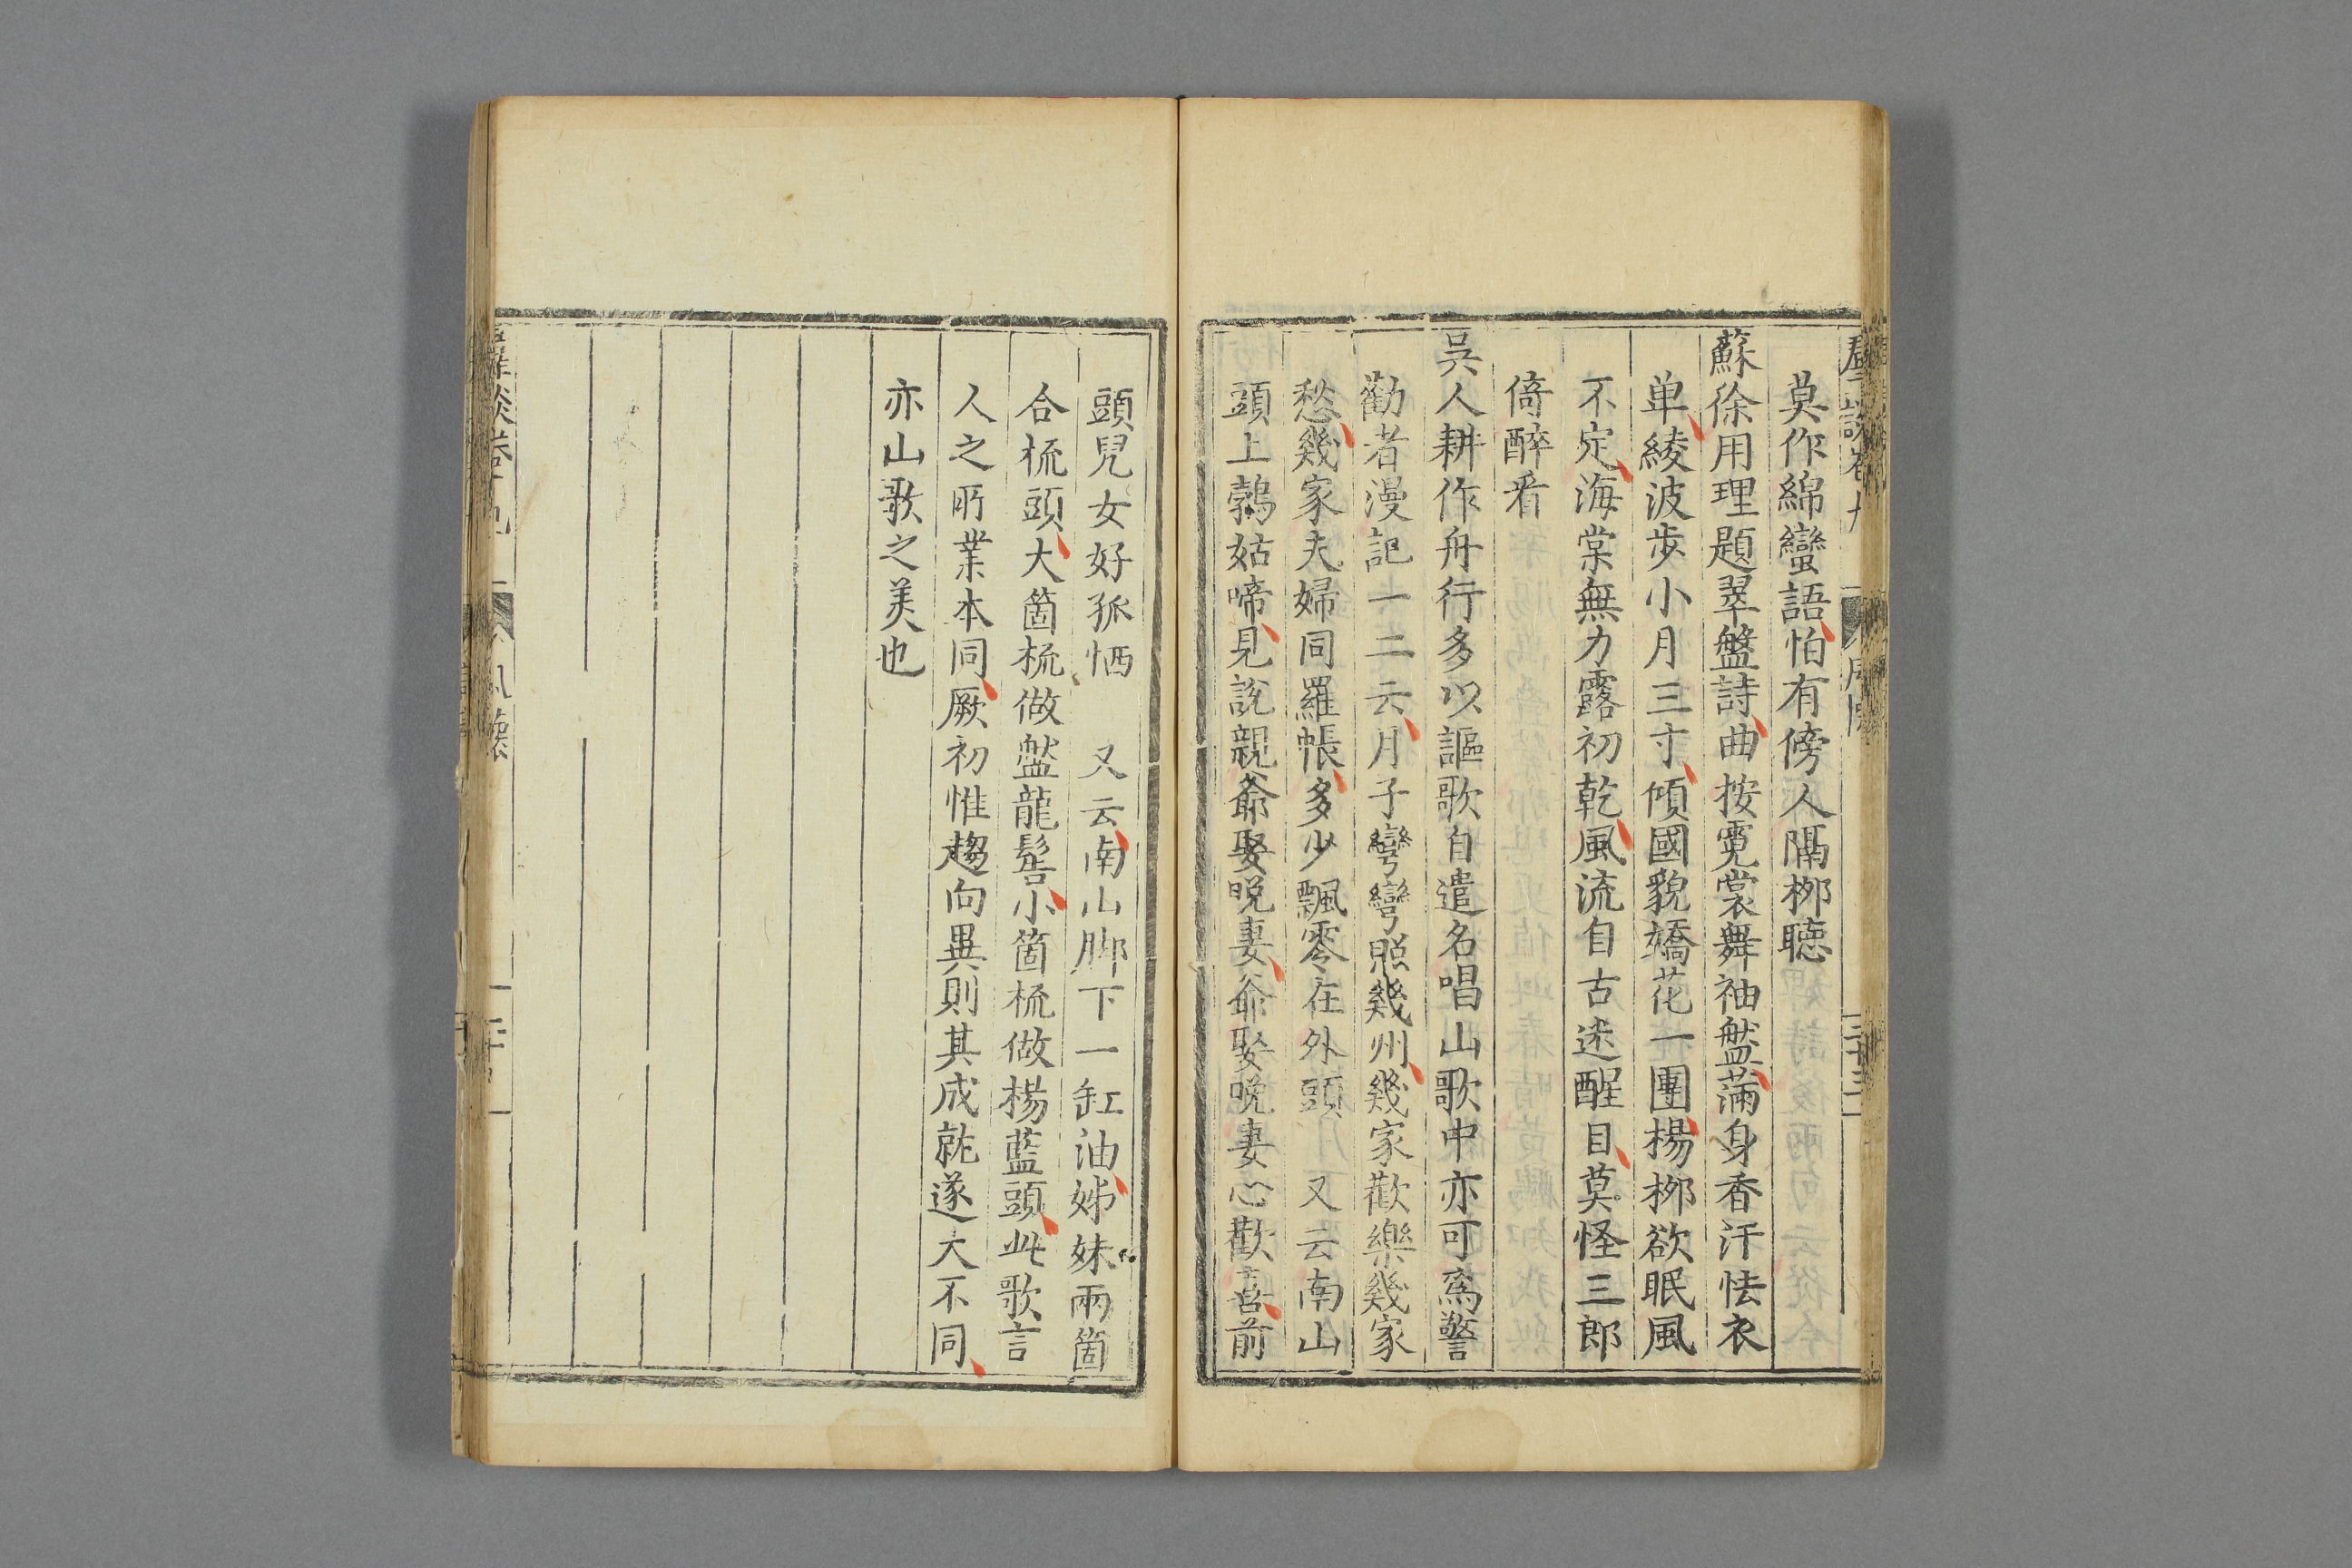 莫作綿蠻語怕有傍人隔柳聽
蘇徐用理題翠盤詩曲按霓裳舞袖盤滿身香汗怯衣
单綾波步小月三寸傾國貌嬌花一團楊柳欲眠風
不定海棠無力露初乾風流自古迷醒目莫怪三郎
倚醉看
吳人耕作舟行多以謳歌自遣名唱山歌中亦可為警
勸者漫記一二云月子彎彎照幾州幾家歡樂幾家
愁幾家夫婦同羅帳多少飄零在外頭 又云南山
頭上鵓姑啼見說親爺娶晚妻爺娶晚妻心歡喜前
頭兒女好孤恓 又云南山脚下一缸油姊妹兩箇
合梳頭大箇梳做盤龍髻小箇梳做楊藍頭此歌言
人之所業本同厥初惟趨向異則其成就遂大不同
亦山歌之美也